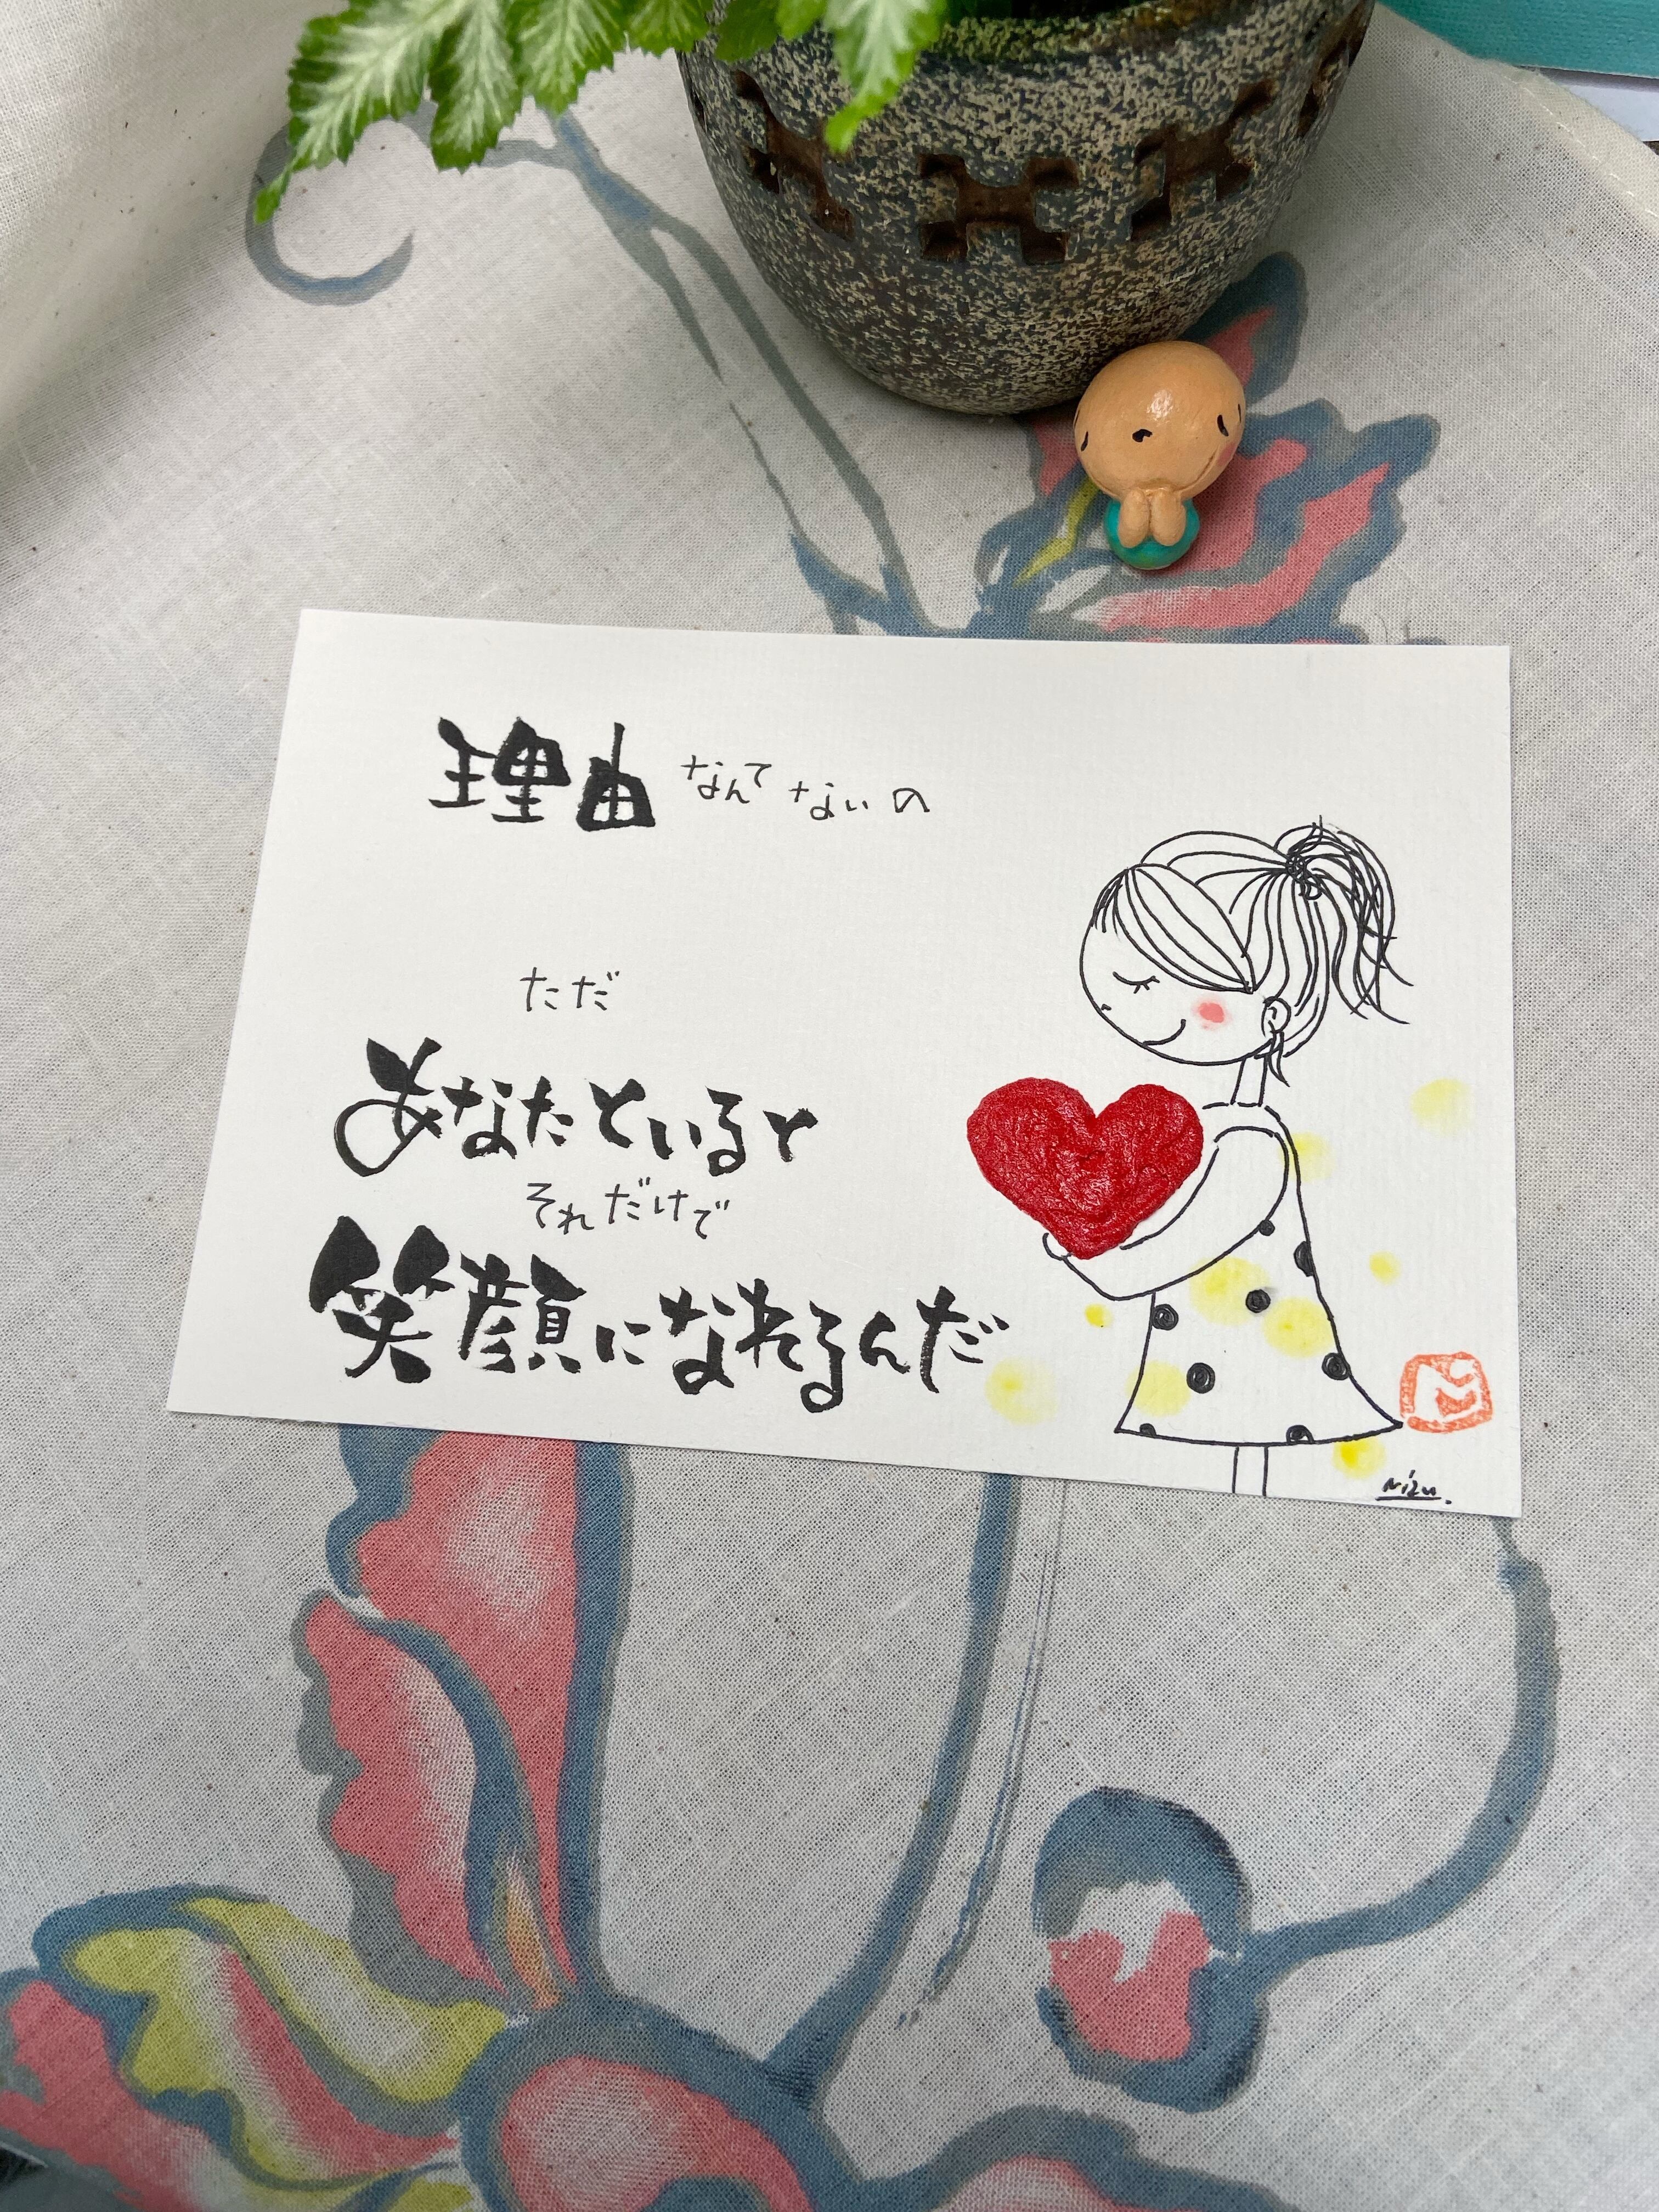 理由なんてないの
ただ
あなたといると
それだけで
笑顔になれるんだ